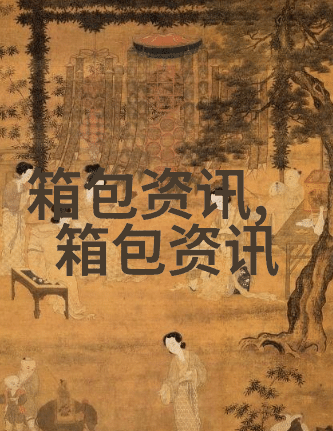 箱包资讯,
箱包资讯